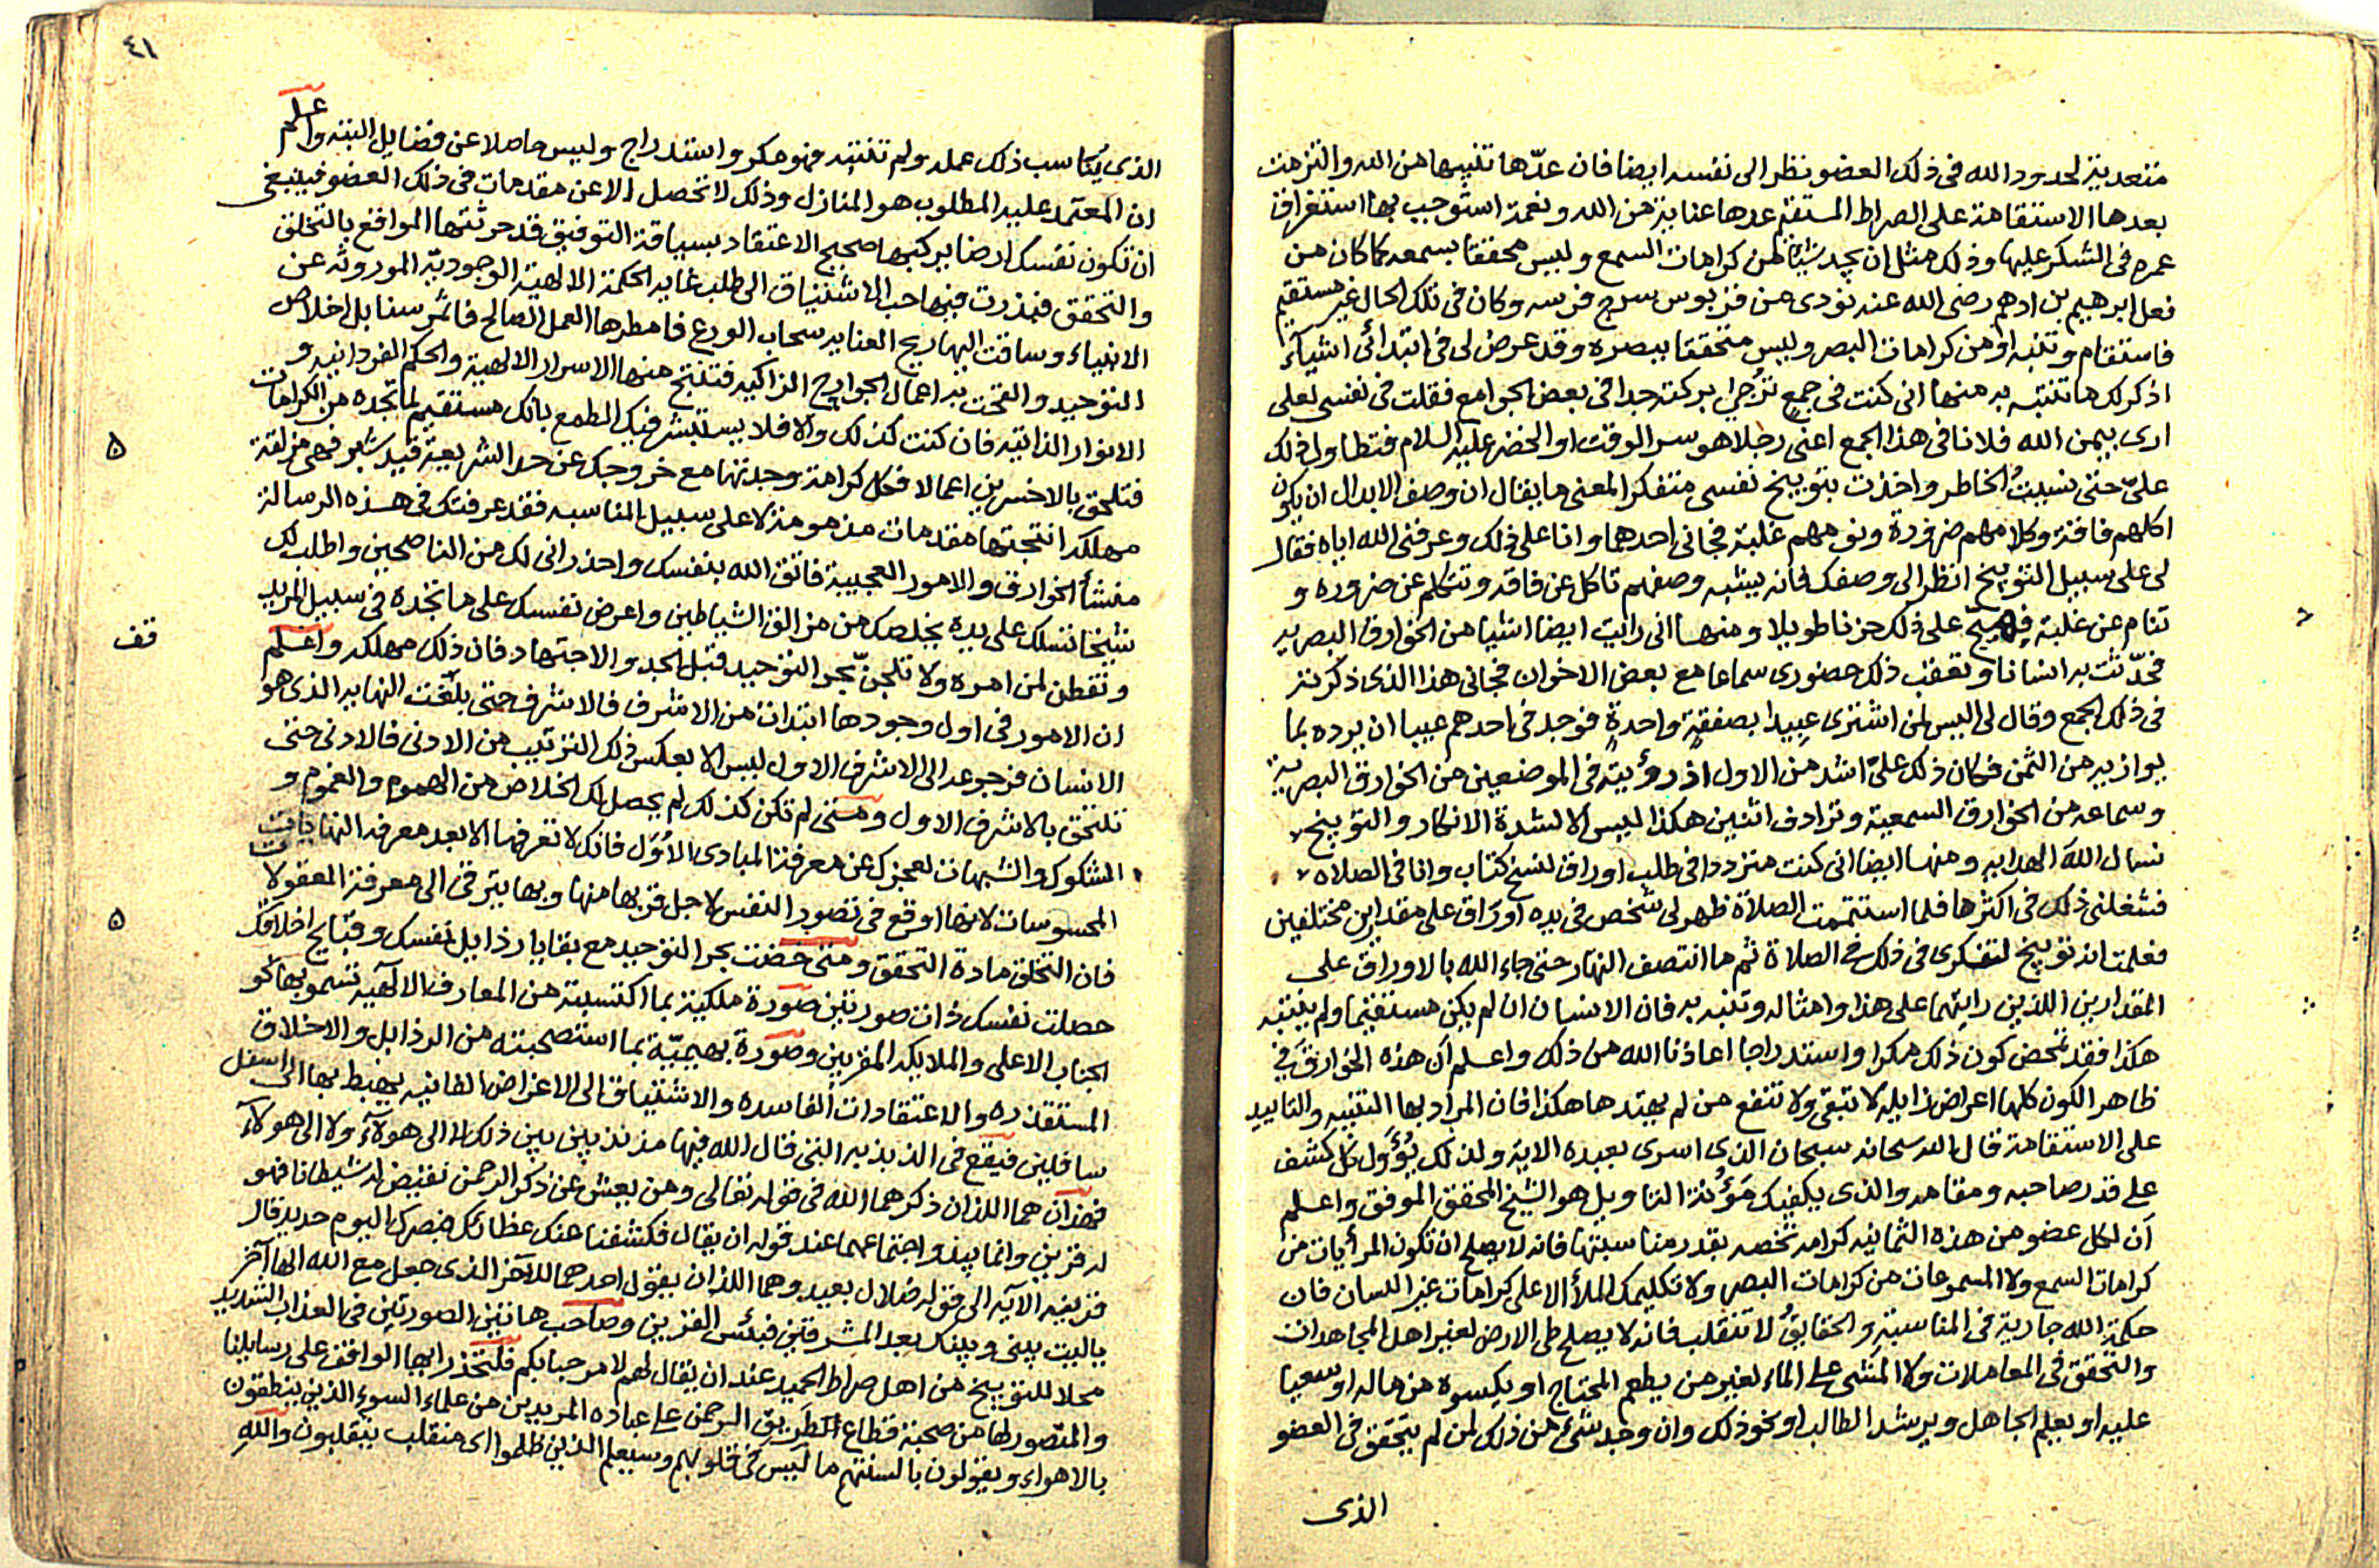 متعدية لحدود الله فى ذلك العضو نظر الى نفسه ايضا فان عدّها تنبيها من الله والتزمت
بعدها الاستقامة على الصراط المستقيم عدها عناية من الله ونعمة استوجب بها استغراق
عمره فى الشكر عليها وذلك مثل ان يجد شيئا من كرامات السمع وليس محققا بسمعه كما كان من
فعل ابرهيم بن ادهم رضى الله عنه نودى من قربوس سرج فرسه وكان فى تلك الحال غير مستقيم
فاستقام وتنبه او من كرامات البصر وليس متحققا ببصره وقد عرض لى فى ابتدائى اشيآء
اذكر لك ما تنتبه به منها انى كنت فى جمع تُرجى بركته جدا فى بعض الجوامع فقلت فى نفسى لعلى
ارى بيمن الله فلانا فى هذا الجمع اعنى رجلا هو سر الوقت او الخضر عليه السلام فتطاول ذلك
علىّ حتى نسيتُ الخاطر واخذت بتوبيخ نفسى متفكرا لمعنى ما يقال ان وصف الابدال ان يكون
اكلهم فاقة وكلامهم ضرورة ونومهم غلبة فجانى احدهما وانا على ذلك وعرفنى الله اياه فقال
لى على سبيل التوبيخ انظر الى وصفك فانه يشبه وصفهم تاكل عن فاقه وتتكلم عن ضروره و
تنام عن غلبة على ذلك حزنا طويلا ومنها انى رايت ايضا اشيا من الخوارق البصريه
فحدّثت به انسانا وتعقب ذلك حضورى سماعا مع بعض الاخوان فجانى هذا الذى ذكرته
فى ذلك الجمع وقال لى اليس لمن اشترى عبيدا بصفقةٍ واحدةٍ فوجد فى احدهم عيبا ان يرده بما
يوازيه من الثمن فكان ذلك علىّ اشد من الاول اذ رؤيته فى الموضعين من الخوارق البصرية
وسماعه من الخوارق السمعية وترادف اثنين هكذا ليس الا لشدة الانكار والتوبيخ
نسال الله الهدايه ومنها ايضا انى كنت مترددا فى طلب اوراق لنسخ كتاب وانا فى الصلاه
فشغلنى ذلك فى اكثرها فلما استتممت الصلاة ظهر لى شخص فى يده أوراق على مقدارين مختلفين
فعلمت انه توبيخ لتفكرى فى ذلك فى الصلاة ثم ما انتصف النهار حتى جاء الله بالاوراق على
المقدارين اللذين رايتهما على هذا وامثاله وتنبه به فان الانسان ان لم يكن مستقيما ولم يتنبه
هكذا فقد تمحض كون ذلك مكرا واستدراجا اعاذنا الله من ذلك واعلم ان هذه الخوارق فى
ظاهر الكون كلها اعراض زايله لا تبقى ولا تنفع من لم يهتد ها هكذا فان المراد بها التنبيه والتاييد
على الاستقامة قال الله سبحانه سبحان الذى اسرى بعبده الاية ولذلك يُؤَوّل كل كشف
على قدر صاحبه ومقامه والذى يكفيك مَؤُنة التاويل هو الشيخ المحقق الموفق واعلم
ان لكل عضو من هذه الثمانيه كرامه تخصه بقدر مناسبتها فانه لا يصلح ان تكون المرأيات من
كرامات السمع ولا المسموعات من كرامات البصر ولا تكليمك الملأ الاعلى كرامات غير اللسان فان
حكمة الله جارية فى المناسبة والحقايقُ لا تنقلب فانه لا يصلح طى الارض لغير اهل المجاهدات
والتحقق فى المعاملات ولا المشى على الماء لغير من يطعم المحتاج او يكسوه من ماله او سعيا
عليه او يعلم الجاهل ويرشد الطالب او نحو ذلك وان وجد شئ من ذلك لمن لم يتحقق فى العضو
الذى
٤١
الذى يُكاسب ذلك عمله ولم تتنبّه فهو مكر واستدراج وليس حاصلا عن فضايل البتة واعلم
ان المعتمد عليه المطلوب هو المنازل وذلك لا تحصل الا عن مقدمات فى ذلك العضو فينبغى
ان تكون نفسك ارضا يركبها صحيح الاعتقاد بسياقة التوفيق قد حرثتها المواقع بالتخلق
والتحقق فبذرت فيها حب الاشتياق الى طلب غايه الحكمة الالهية الوجوديّة الموروثه عن
الانبياء وساقت اليها ريح العنايه سحاب الورع فامطرها العمل الصالح فاثمر سنابل اخلاص
التوحيد والقحت به اعمال الجوارح الزاكيه فتنتج منها الاسرار الالهية والحكم الفردانيه و
الانوار الذاتيه فان كنت كذلك والا فلا يستبشر فيك المطمع بانك مستقيم لما تجده من الكرامات
فتلحق بالاخسرين اعمالا فكل كرامة وجدتها مع خروجك عن حد الشريعة قيد شبر فهى مزلقة
مهلكه انتجتها مقدمات مذمومة لا على سبيل المناسبه فقد عرفتك فى هذه الرسالة
منشأ الخوارق والامور العجيبة فاتق الله بنفسك واحذر انى لك من الناصحين واطلب لك
شيخا تسلك على يده يخلصك من مزالق الشياطين واعرض نفسك على ما تجده فى سبيل المزيد
وتفطن لمن امره ولا تلجنّ بحر التوحيد قبل الجد والاجتهاد فان ذلك مهلكه واعلم
قف
ان الامور فى اول وجودها ابتدات من الاشرف فالاشرف حتى بلّغت النهايه الذى هو
الانسان فرجوعه الى الاشرف الاول ليس الا بعكس ذلك الترتيب من الادنى فالادنى حتى
تلتحق بالاشرف الاول ومتى لم تكن كذلك لم يحصل لك الخلاص من الهموم والغموم و
الشكوك والشبهات لعجزك عن معرفة المبادى الأُوَل فانك لا تعرفها الا بعد معرفه النهايات
المحسوسات لانها اوقع فى تصور النفس لاجل قربها منها وبها يترقى الى معرفة المعقولات
فان التخلق مادة التحقق ومتى خضت بحر التوحيد مع بقايا رذايل نفسك وقبايح اخلاقك
حصلت نفسك ذات صورتين صورة ملكية بما اكتسبته من المعارف الالهيه تسمو بها نحو
الجناب الاعلى والملايكه المقربين وصورة بهيميّة بما استصحبته من الرذايل والاخلاق
المستقذره والاعتقادات الفاسده والاشتياق الى الاعراض الفانيه يهبط بها الى اسفل
سافلين فتقع فى الذبذبه التى قال الله فيها مذبذبين بين ذلك لا الى هولآء ولا الى هولآء
فهذان هما اللذان ذكرهما الله فى قوله تعالى ومن يعش عن ذكر الرحمن نقيض له شيطانا فهو
له قرين وانما يبدو اجتماعهما عند قوله ان يقال فكشفنا عنك غطاءك فبصرك اليوم حديد قال
قرينه الآيه الى قوله ضلال بعيد وهما اللذان يقول احدهما للآخر الذى جعل مع الله الها آخر
ياليت بينى وبينك بعد المشرقين فبئس القرين وصاحب هاتين الصورتين فى العذاب الشديد
محلا للتوبيخ من اهل صراط الحميد عند ان يقال لهم لا مرحبا بكم فلتحذر ايها الواقف على رسايلنا
والمتصور لها من صحبة قطاع طريق الرحمن على عباده المريدين من علماء السوء الذين ينطقون
بالاهواء ويقولون بالسنتهم ما ليس فى قلوبهم وسيعلم الذين ظلموا اى منقلب ينقلبون والله